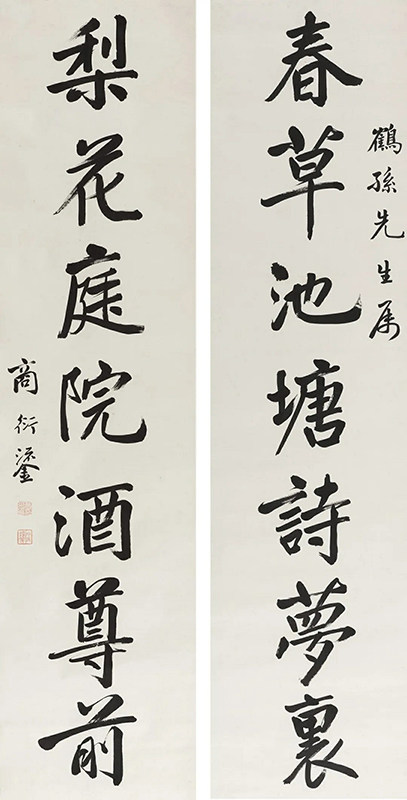 鶴孫先生屬
春草池塘詩夢裏
梨花庭院酒尊前
商衍鎏